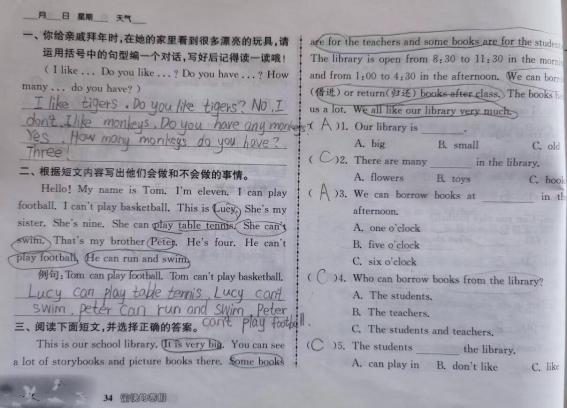 月 日 星期 天气
一、你给亲戚拜年时,在她的家里看到很多漂亮的玩具,请
运用括号中的句型编一个对话,写好后记得读一读哦!
( I like ... Do you like ... ? Do you have ... ? How
many ... do you have? )
I like tigers. Do you like tigers? No, I
don't. I like monkeys. Do you have any monkeys?
Yes. How many monkeys do you have?
Three!
二、根据短文内容写出他们会做和不会做的事情。
Hello! My name is Tom. I'm eleven. I can play
football. I can't play basketball. This is Lucy. She's my
sister. She's nine. She can play table tennis. She can't
swim. That's my brother Peter. He's four. He can't
play football. He can run and swim.
例句:Tom can play football. Tom can't play basketball.
Lucy can play table tennis, Lucy can't
swim. Peter can run and swim, Peter
can't play football.
三、阅读下面短文,并选择正确的答案。
This is our school library. It is very big. You can see
a lot of storybooks and picture books there. Some books
34
are for the teachers and some books are for the
The library is open from 8:30 to 11:30 in the
and from 1:00 to 4:30 in the afternoon. We can
(借进) or return(归还) books after class. The books
us a lot. We all like our library very much.
( A )1. Our library is ______.
A. big B. small C. old
( C )2. There are many ______ in the library.
A. flowers B. toys C.
( A )3. We can borrow books at ______ in
afternoon.
A. one o'clock
B. five o'clock
C. six o'clock
( C )4. Who can borrow books from the library?
A. The students.
B. The teachers.
C. The students and teachers.
( C )5. The students ______ the library.
A. can play in B. don't like C. like